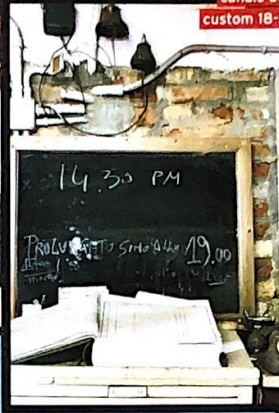 custom 18-
14.30 PM
PROLUNGATO SINO ALLE 19.00